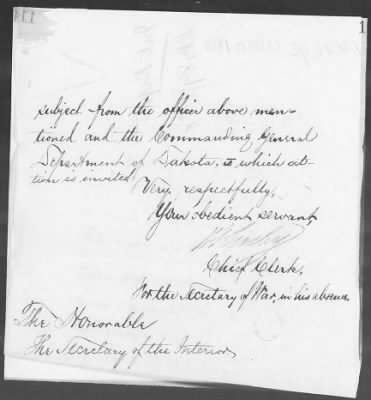 1
subject from the officer above men-
tioned and the Commanding General
Department of Dakota, to which at-
tion is invited.
Very respectfully,
Your obedient servant,
Chief Clerk.
For the Secretary of War, in his absence.
The Honorable
The Secretary of the Interior